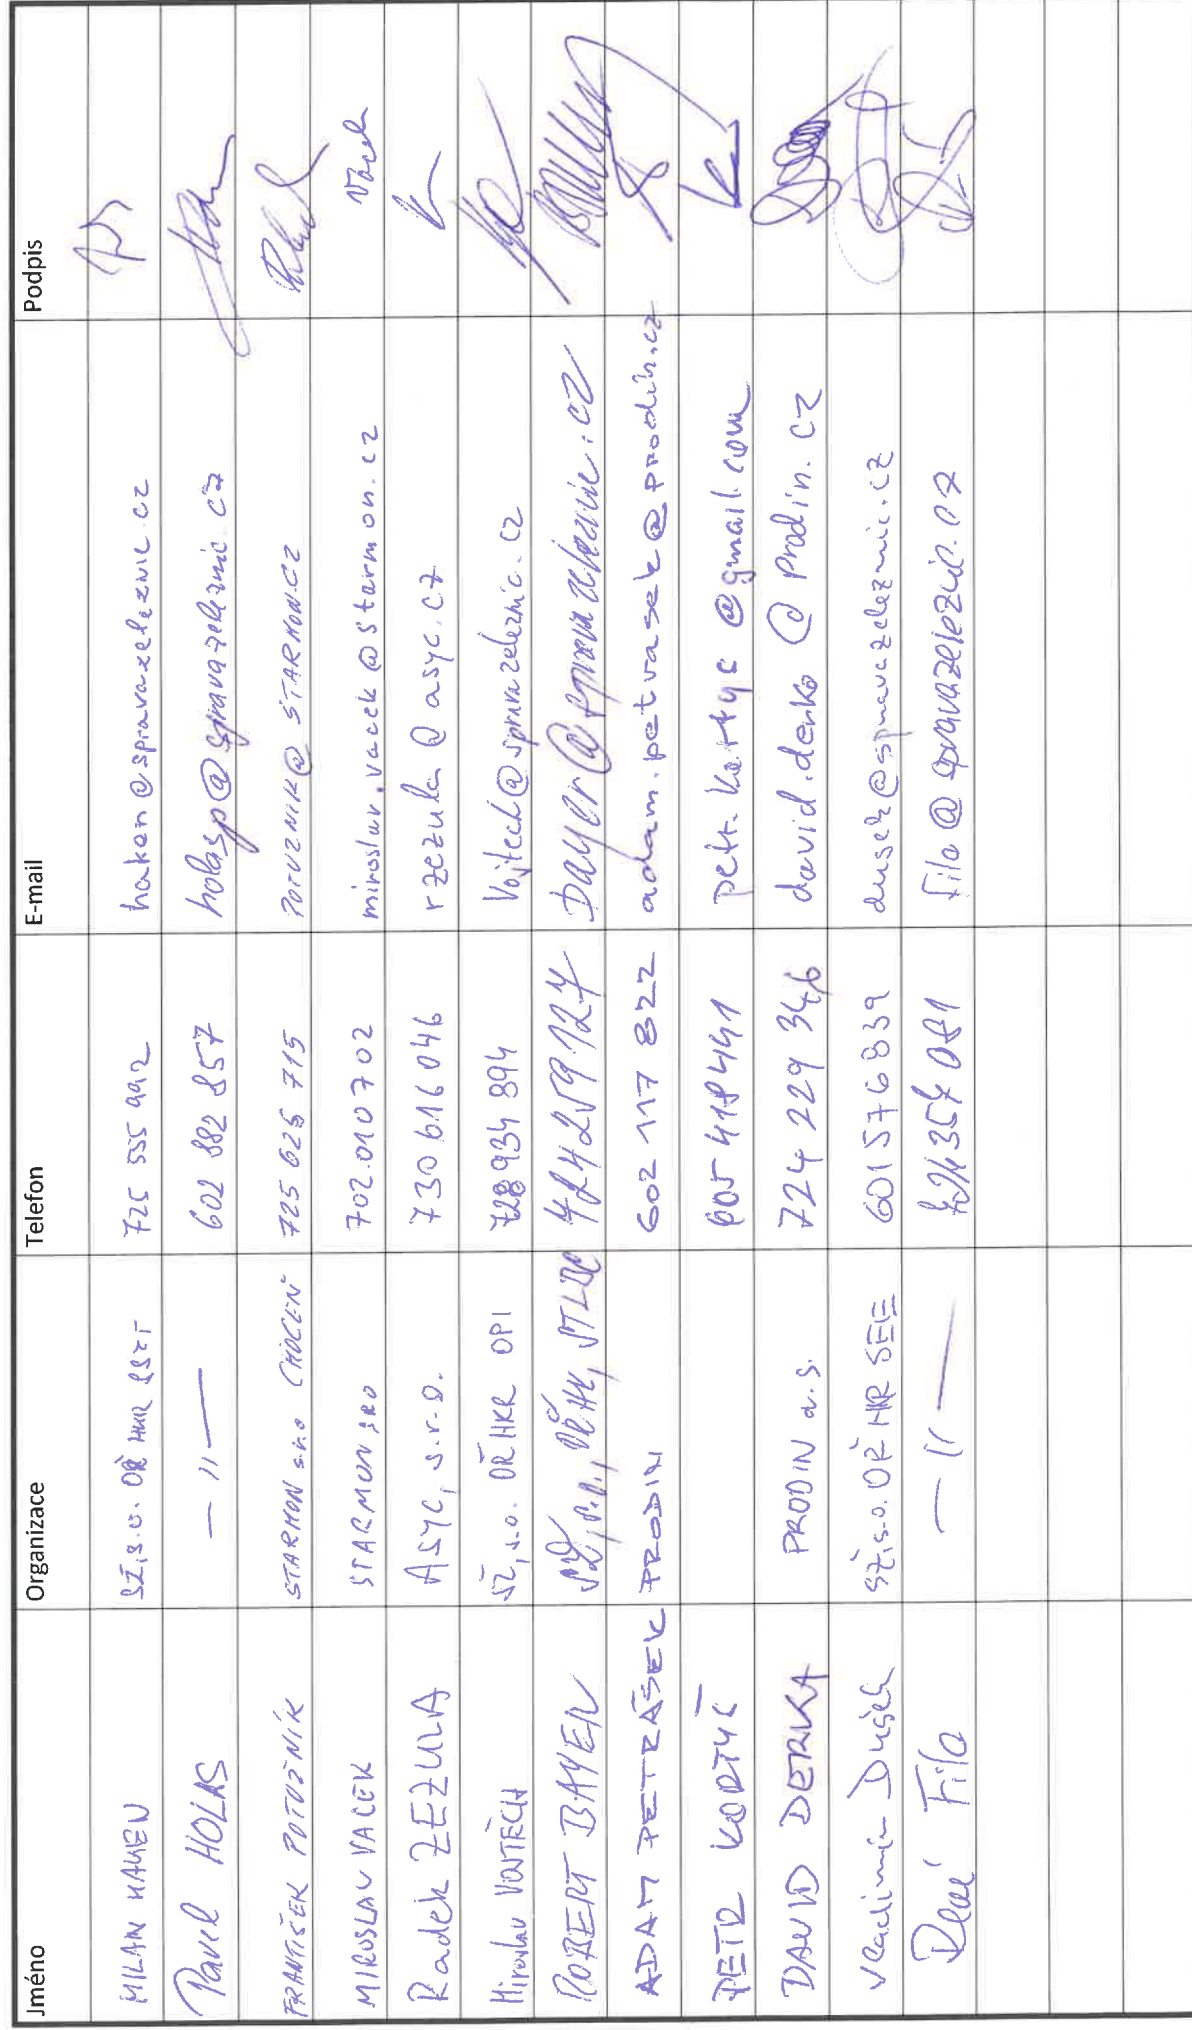 Jméno Organizace Telefon E-mail Podpis
MILAN HAKEN SŽ, s.o. OŘ HKR SSZT 725 555 992 haken@spravazeleznic.cz
Pavel HOLAS — 11 — 602 882 857 holasp@spravazeleznic.cz
FRANTIŠEK POTUŽNÍK STARMON s.r.o CHOCEŇ 725 625 715 POTUZNIK@STARMON.CZ
MIROSLAV VACEK STARMON SRO 702 010 702 miroslav.vacek@starmon.cz Vacek
Radek ZEZULA ASYC, s.r.o. 730 616 046 rzezula@asyc.cz
Miroslav VOJTĚCH SŽ, s.o. OŘ HKR OPI 728 934 894 Vojtech@spravazeleznic.cz
ROBERT BAYER SŽ, s.o., OŘ HK, 724259127 Bayer@spravazeleznic.cz
ADAM PETRÁŠEK PRODIN 602 117 822 adam.petrasek@prodin.cz
PETR KORTYŠ 605 418441 petr.kortys@gmail.com
DAVID DERKA PRODIN a.s. 724 229 346 david.derka@prodin.cz
Vladimír Dušek SŽ, s.o. OŘ HKR SEE 601576839 dusek@spravazeleznic.cz
René Fila — 11 — 724357081 fila@spravazeleznic.cz